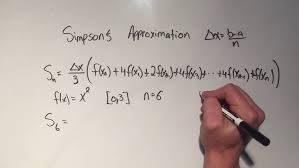 Simpson's Approximation Δx = b-a/n
Sₙ = Δx/3 (f(x₀) + 4f(x₁) + 2f(x₂) + 4f(x₃) + ... + 4f(xₙ₋₁) + f(xₙ))
f(x) = x² [0,3] n=6
S₆ =